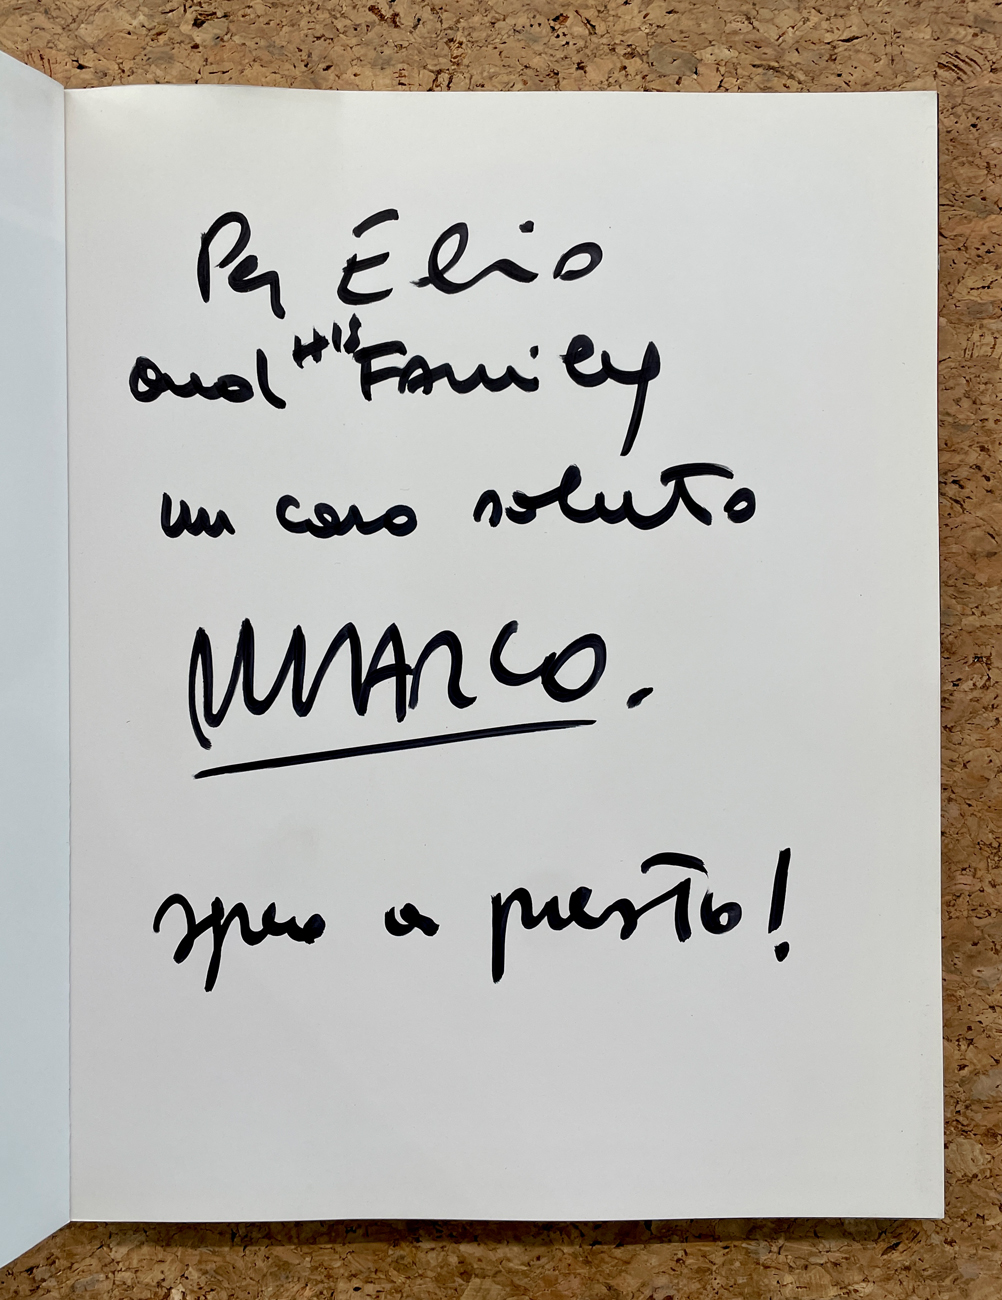 Per Elio
and HIS FAMily
un caro saluto
MARCO.
spero a presto!